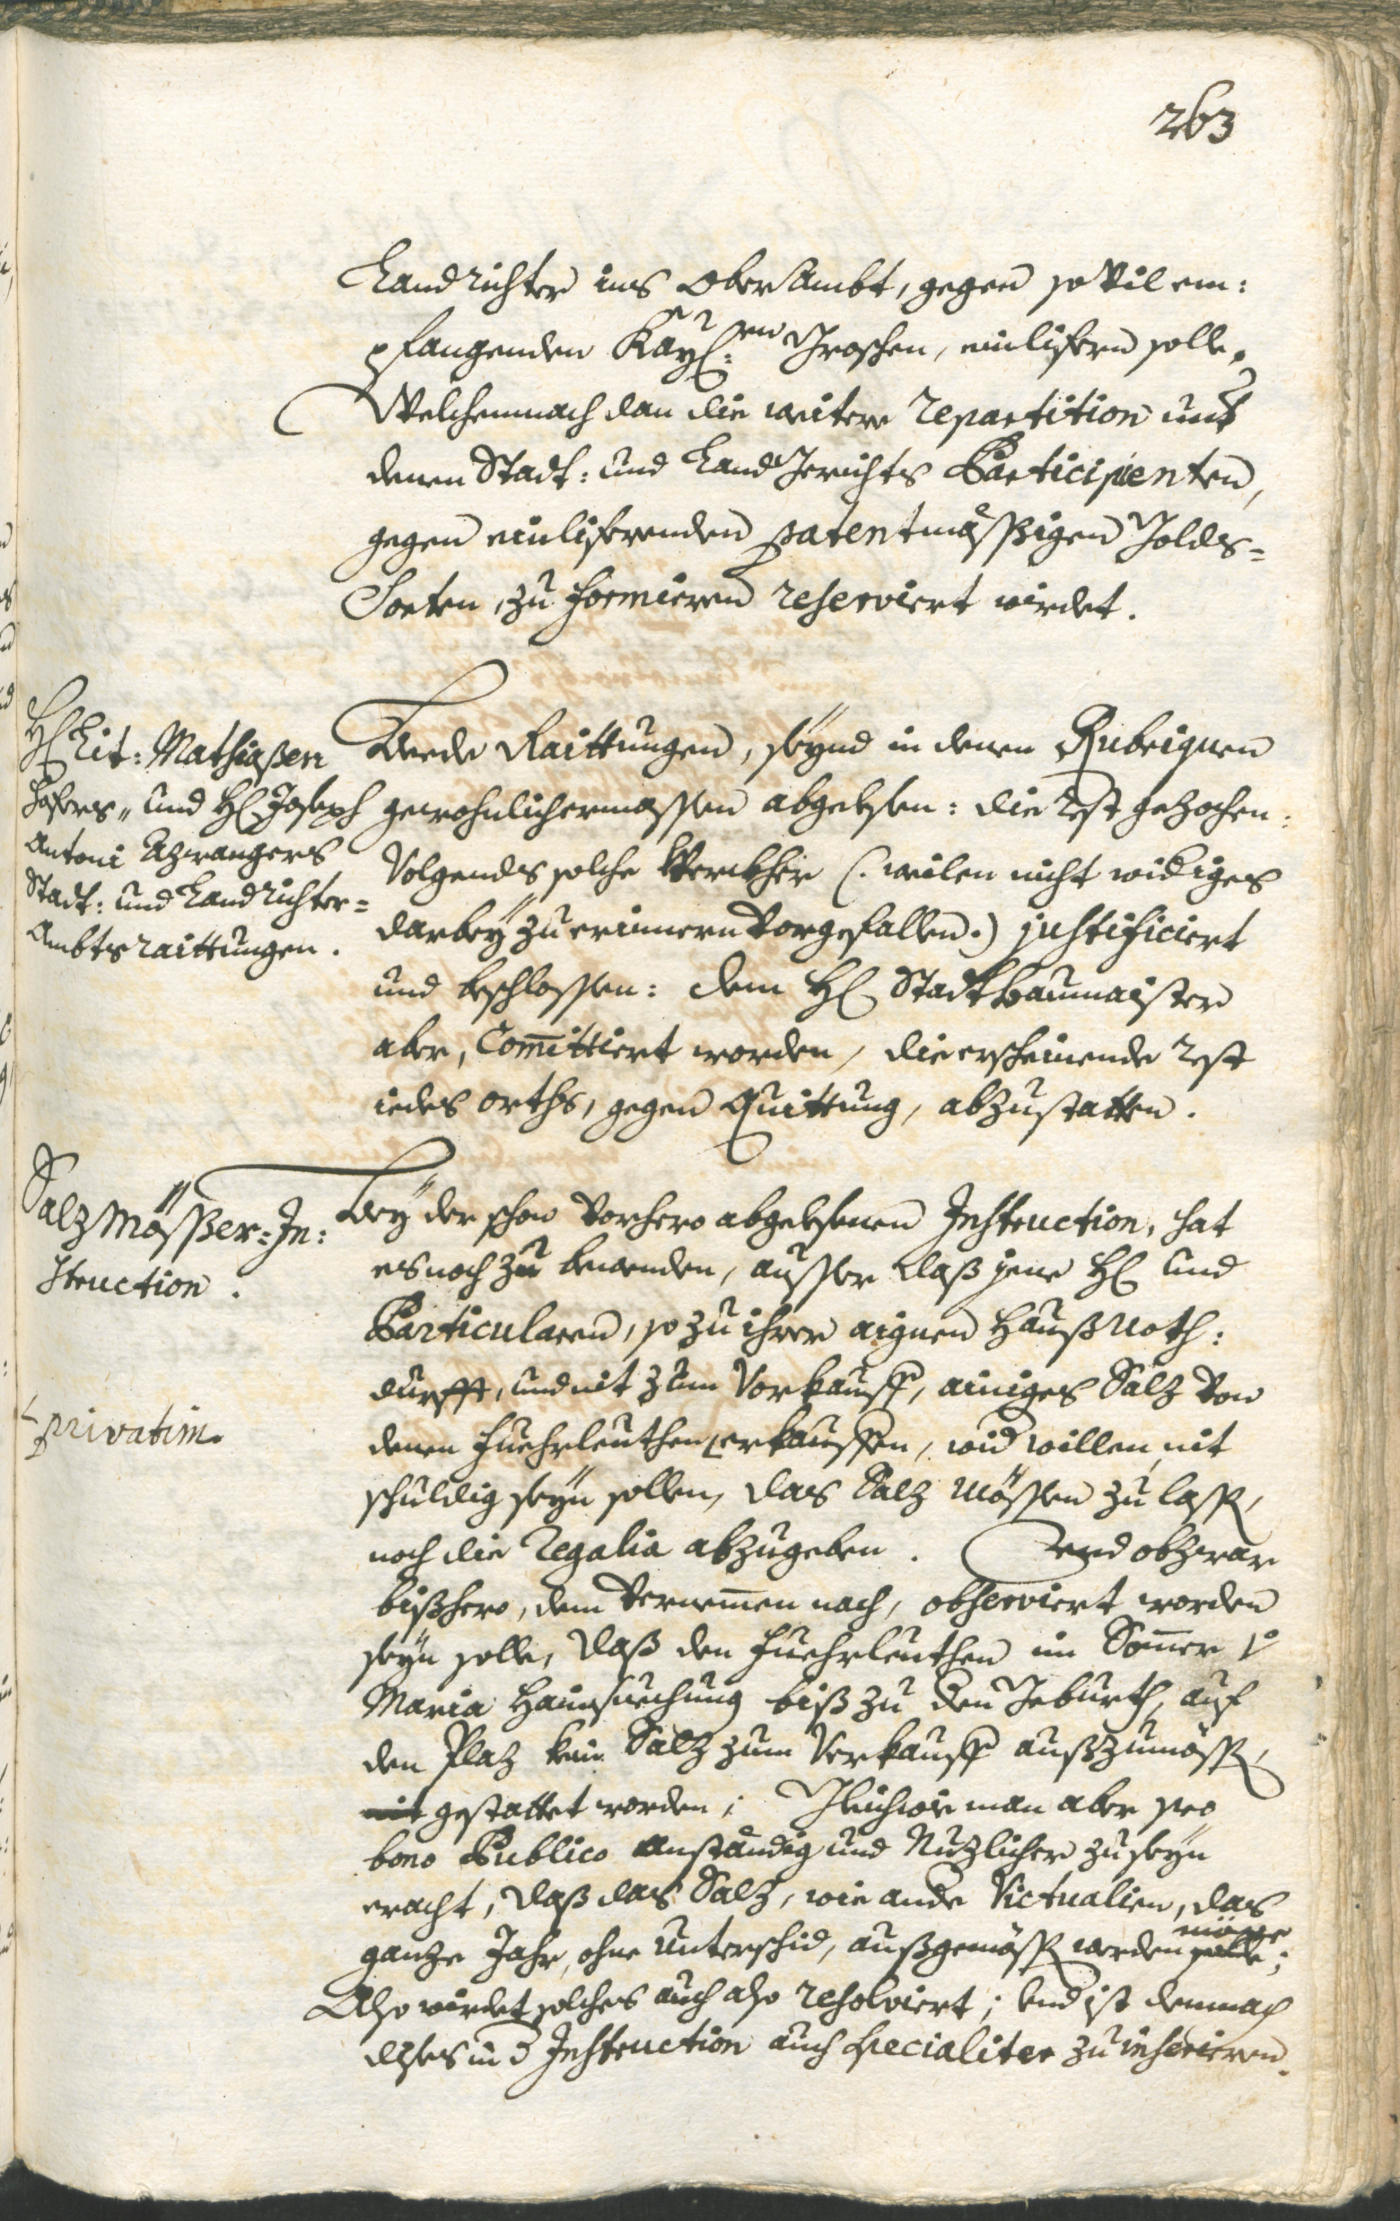 263
Landrichter ins OberAmbt, gegen so Vil em:
pfangenden Kay: en Groschen, einlifern solle,
Welchemnach dan die weitere repartition unt
denen Statt: und LandGerichts Participienten,
gegen einlifferenden patentmässigen Golds=
Sorten, zu formieren reserviert wirdet.
H Lit: Mathiaßen
Hofers, und H Joseph
Antoni Azwangers
Statt: und Landrichter=
Ambtsraittungen.
Beede Raittungen, seynd in denen Rubriquen
gewohnlichermassen abgelesen: die rest gezochen:
Volgends solche Werckher (: weilen nicht widiges
darbey zu erinnern Vorgefallen:) justificiert
und beschlossen: dem H Stattbaumaister
aber, Committiert worden, die erscheinende rest
iedes orths, gegen Quittung, abzustatten.
Salzmösßer=In:
struction.
Bey der schon Vorhero abgelesenen Instruction, hat
es noch zu bewenden, ausser daß jene H und
Particularen, so zu ihrer aignen Haußnoth:
durfft, und nit zum Verkauff, ainiges Salz Von
denen Fuehrleuthen erkauffen, und willen, nit
privatim.
schuldig seyn sollen, das Salz mössen zu lassen,
noch die regalia abzugeben. Und obzwar
bißhero, dem Vernemen nach, observiert worden
seyn solle, daß den Fuehrleuthen im Sommer
Maria Haimsuechung biß zu den Geburth, auf
den Plaz kein Salz zum Verkauff außzumössen,
nit gestattet worden; Gleichwie man aber pro
bono Publico anständig und Nuzlicher zu seyn
eracht, daß das Salz, wie ande Victualien, das
ganze Jahr, ohne Unterschid, außgemössen werden solle möge;
Also wirdet solches auch also resolviert; und ist demnach
dises in d Instruction auch specialiter zu inserieren.